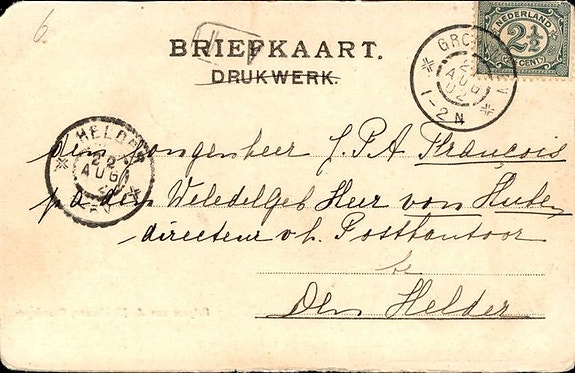 6
BRIEFKAART.
DRUKWERK.
NEDERLAND
2½
CENT
22
AUG
02
1-2N
HELDER
22
AUG
den Jongenheer J.P.A. François
p/a den WeledelGeb Heer von
directeur v.h. Postkantoor
te
Den Helder